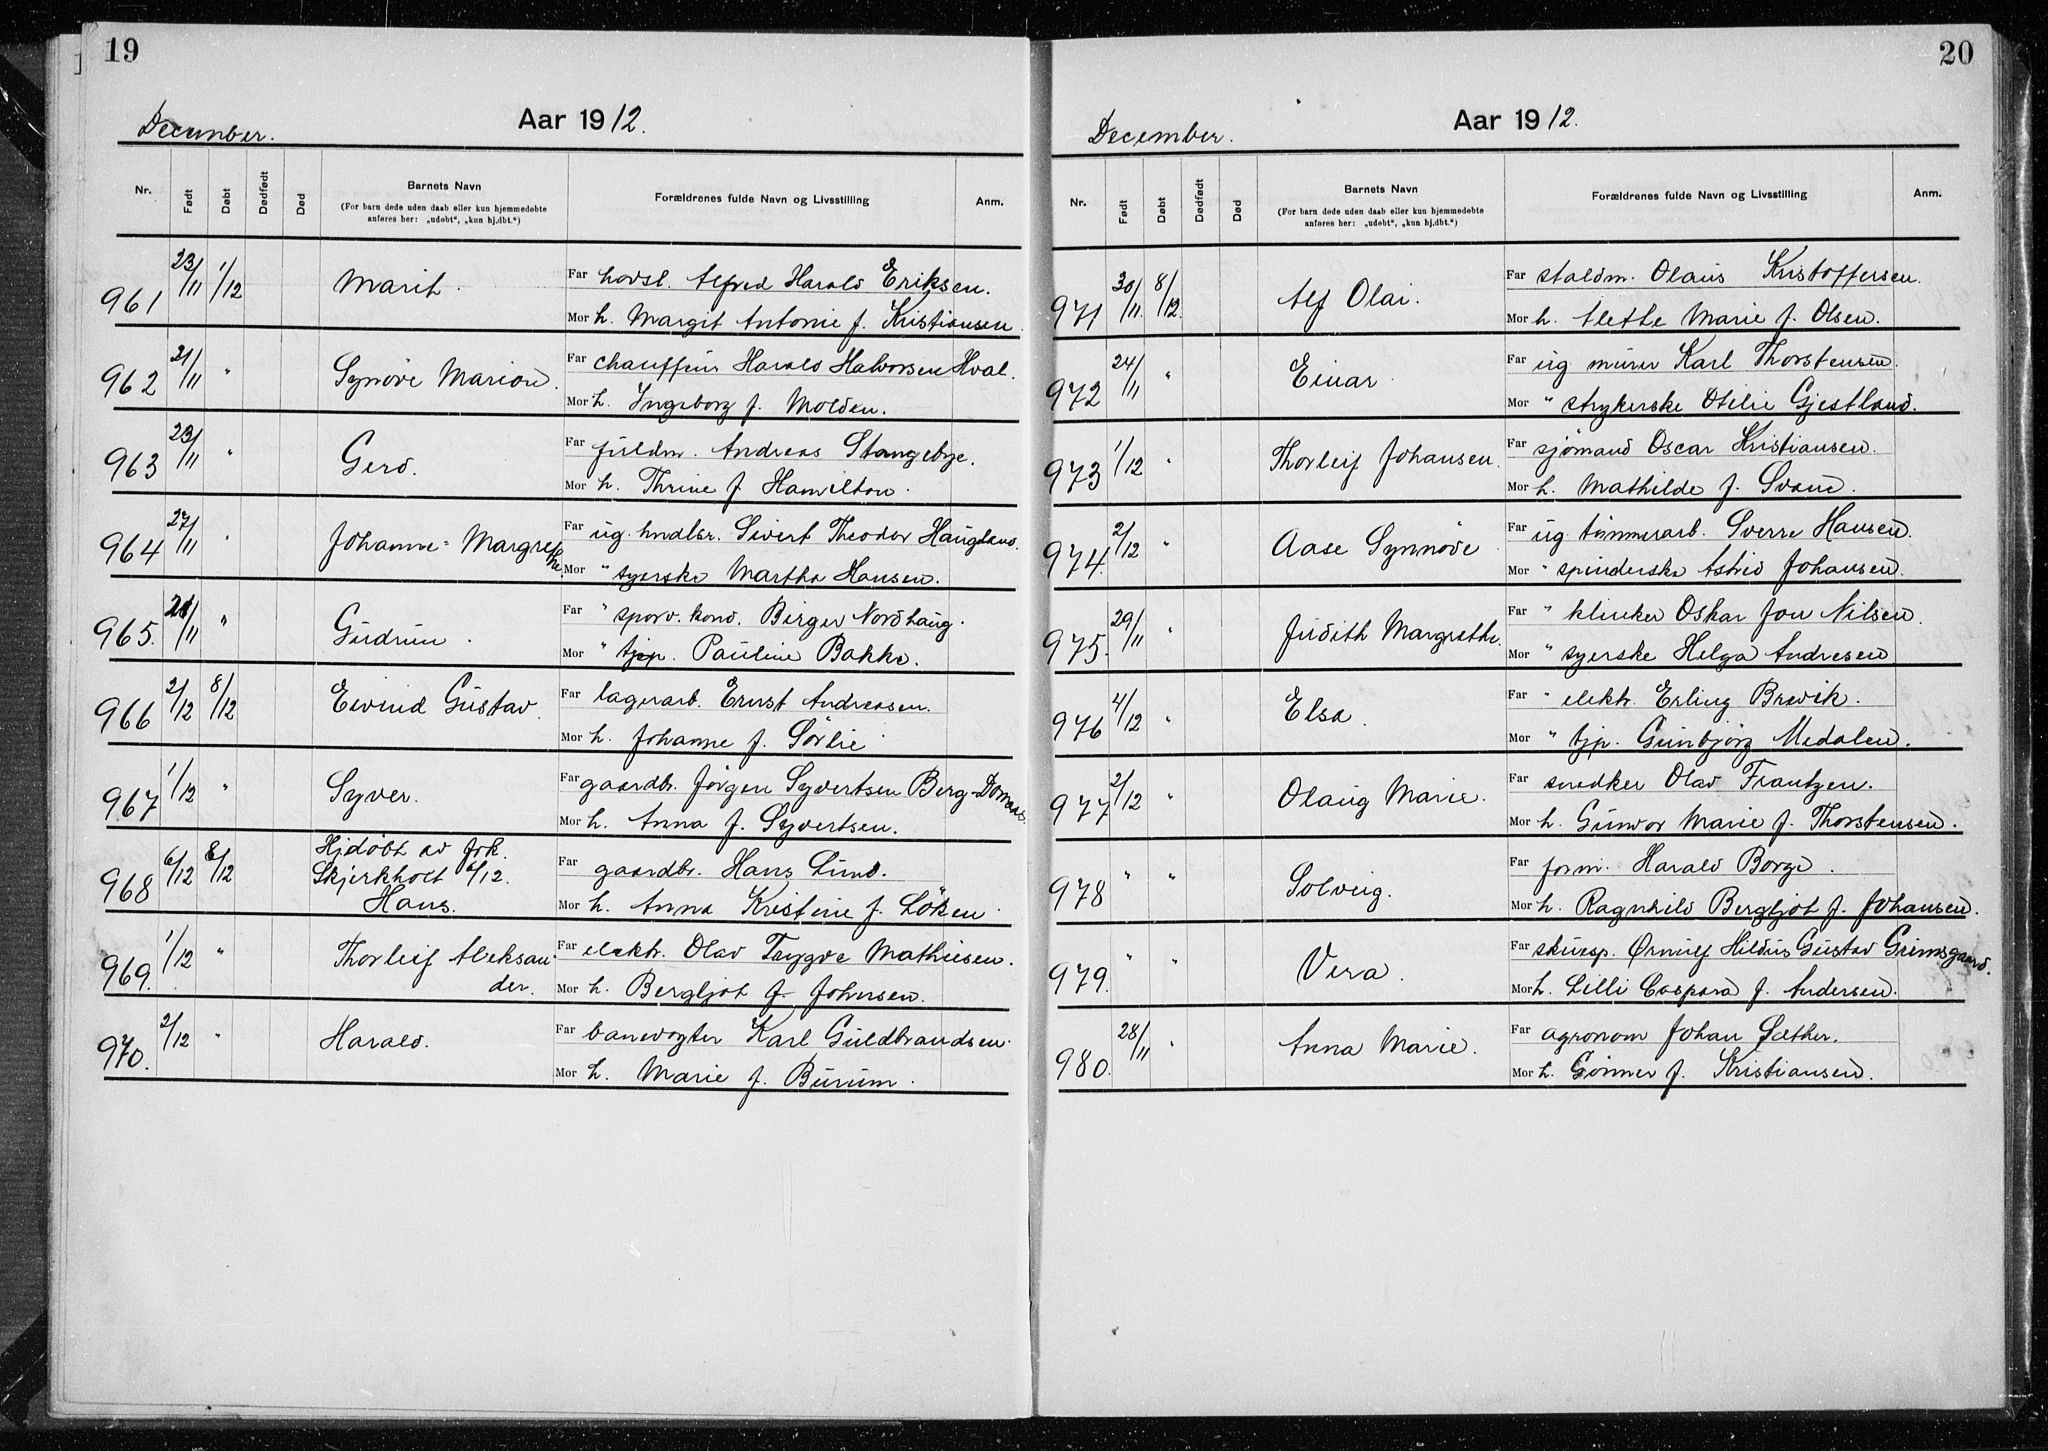 19
December.
Aar 1912.
Nr.
Født
Døbt
Dødfødt
Død
Barnets Navn
(For barn døde uden daab eller kun hjemmedøbte
anføres her: „udøbt“, „kun hj.dbt.“)
Forældrenes fulde Navn og Livsstilling
Anm.
961 23/11 1/12 Marit. Far hovsl. Alfred Harald Eriksen.
Mor h. Margit Antonie f. Kristiansen.
962 21/11 " Synöve Marion. Far chauffeur Harald Halvorsen Hval.
Mor h. Ingeborg f. Molden.
963 23/11 " Gerd. Far fuldm. Andreas Stangebye.
Mor h. Thrine f. Hamilton.
964 27/11 " Johanne-Margrethe. Far ug. hndlbr. Sivert Theodor Haugland.
Mor " syerske Martha Hansen.
965. 21/11 " Gudrun. Far " sporv. kond. Birger Nordhaug.
Mor " tjp. Pauline Bakke.
966 2/12 8/12 Eivind Gustav. Far lagerarb. Ernst Andreasen.
Mor h. Johanne f. Sörlie
967 1/12 " Syver. Far gaardbr. Jörgen Syvertsen Berg-Domaas.
Mor h. Anna f. Syvertsen.
Hjdöbt av frk.
968 6/12 8/12 Skjerkholt 6/12. Far gaardbr. Hans Lund.
Hans. Mor h. Anna Kristine f. Löken.
969. 1/12 " Thorleif Aleksan- Far elektr. Olav Trygve Mathiesen.
der. Mor h. Bergljot f. Johnsen.
970. 2/12 " Harald. Far banevogter Karl Guldbrandsen.
Mor h. Marie f. Burum.
20
December.
Aar 1912.
Nr.
Født
Døbt
Dødfødt
Død
Barnets Navn
(For barn døde uden daab eller kun hjemmedøbte
anføres her: „udøbt“, „kun hj.dbt.“)
Forældrenes fulde Navn og Livsstilling
Anm.
971 30/11. 8/12. Alf Olai. Far staldm. Olaus Kristoffersen.
Mor h. Alette Marie f. Olsen.
972 24/11 " Einar. Far ug murer Karl Thorstensen.
Mor " strykerske Otilie Gjestland.
973 1/12 " Thorleif Johansen. Far sjömand Oscar Kristiansen.
Mor h. Mathilde f. Svane.
974. 2/12 " Aase Synnöve Far ug. tömmerarb. Sverre Hansen.
Mor " spinderske Astrid Johansen.
975. 29/11 " Judith Margrethe. Far " klinker Oskar Jon Nilsen.
Mor " syerske Helga Andresen
976 4/12 " Elsa. Far " elektr. Erling Brevik.
Mor " tjp. Gunbjörg Medalen.
977 2/12 " Olaug Marie. Far snedker Olav Frantzen.
Mor h. Gunvor Marie f. Thorstensen.
978 " " Solveig. Far form. Harald Borge.
Mor h. Ragnhild Bergljot f. Johansen.
979. " " Vera. Far skuesp. Ørnulf Hildus Gustav Grimsgaard.
Mor h. Lilli Caspara f. Andersen.
980. 28/11 " Anna Marie. Far agronom Johan Sæther.
Mor h. Gunner f. Kristiansen.